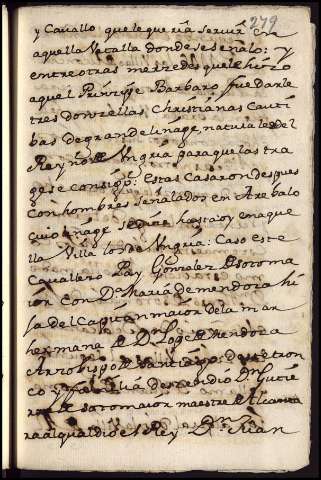 279
y Cauallo que le quería seruir en
aquella Vatalla donde se señalo: y
entre otras mersedes que le hizo
aquel Prinsipe Barbaro fue darle
tres donzellas Christianas Cauti
bas de grande linage naturales del
Reyno de Vngria para que las tra
gese consigo: Estas Casaron despues
con hombres señalados en Arebalo
cuio linage se dize hasta oy en aque
lla Villa los de Vngria: Caso este
Cavallero Pay Gomez de Sotoma
ior con Dª Maria de mendoza hi
ja del Capitan maior de la mar
hermana de D. Lope de Mendoza
Arzobispo de Santiago: de este tron
co y familia desendio Dn Gutie
rre de Sotomaior maestre de Alcanta
ra al qual dio el Rey Dn Juan